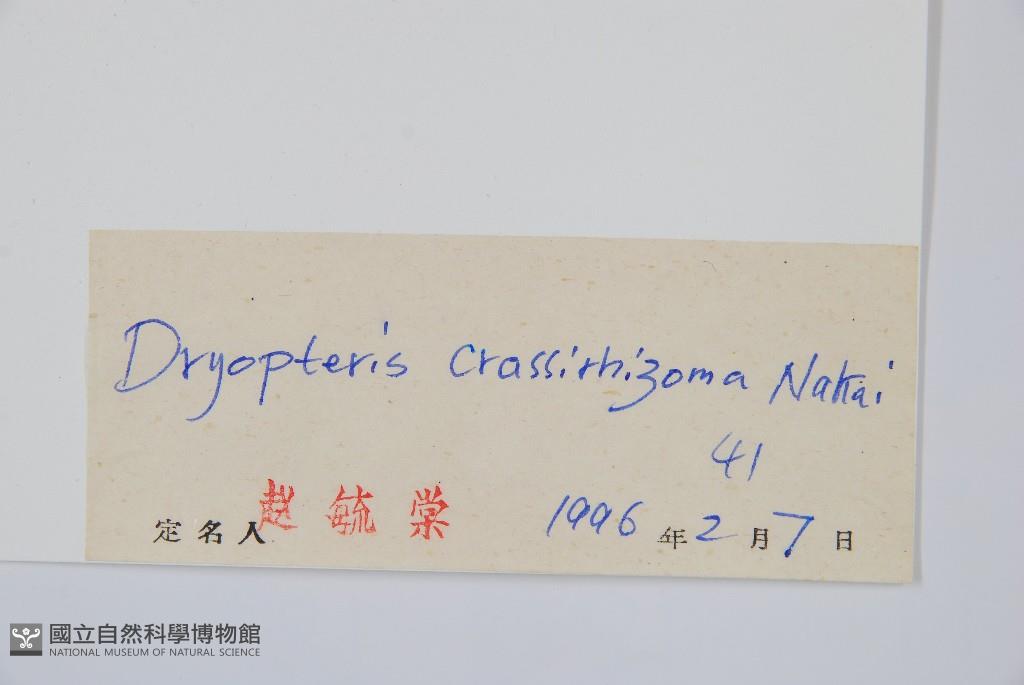 Dryopteris crassirhizoma Nakai
41
定名人 赵毓棠 1996年2月7日
國立自然科學博物館
NATIONAL MUSEUM OF NATURAL SCIENCE